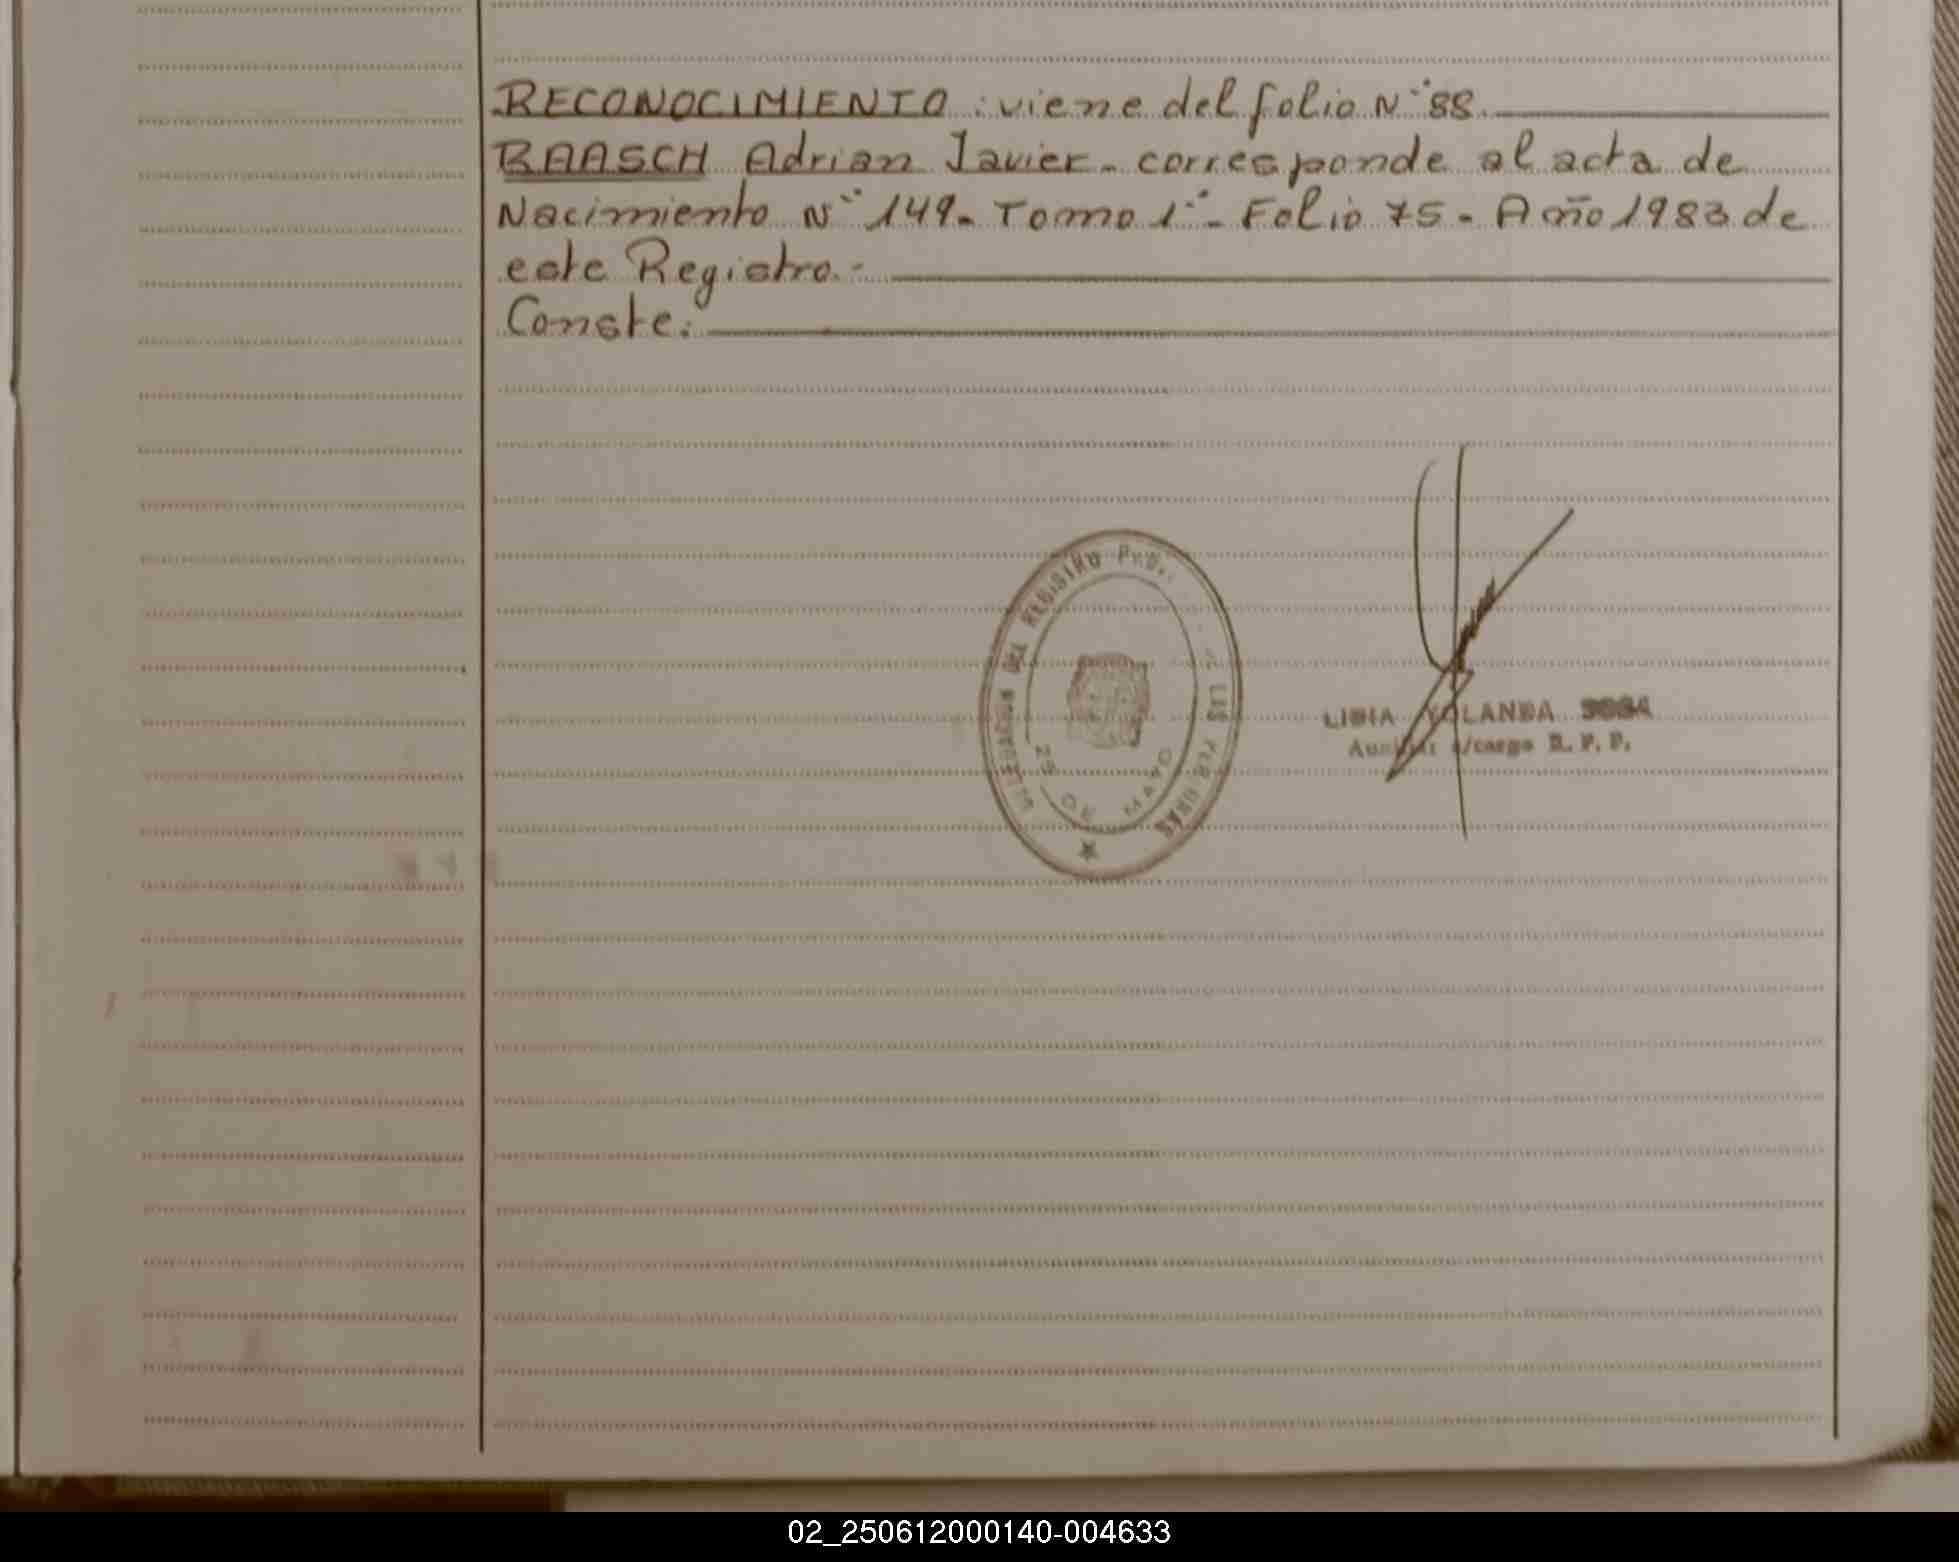 RECONOCIMIENTO: viene del folio N° 88.
BAASCH Adrian Javier - corresponde al acta de
Nacimiento N° 149 - Tomo 1° - Folio 75 - Año 1983 de
este Registro.-
Conste:
DEL REGISTRO
LAS
25 DE MAYO
LIBIA YOLANDA
a/cargo R. P. P.
02_250612000140-004633